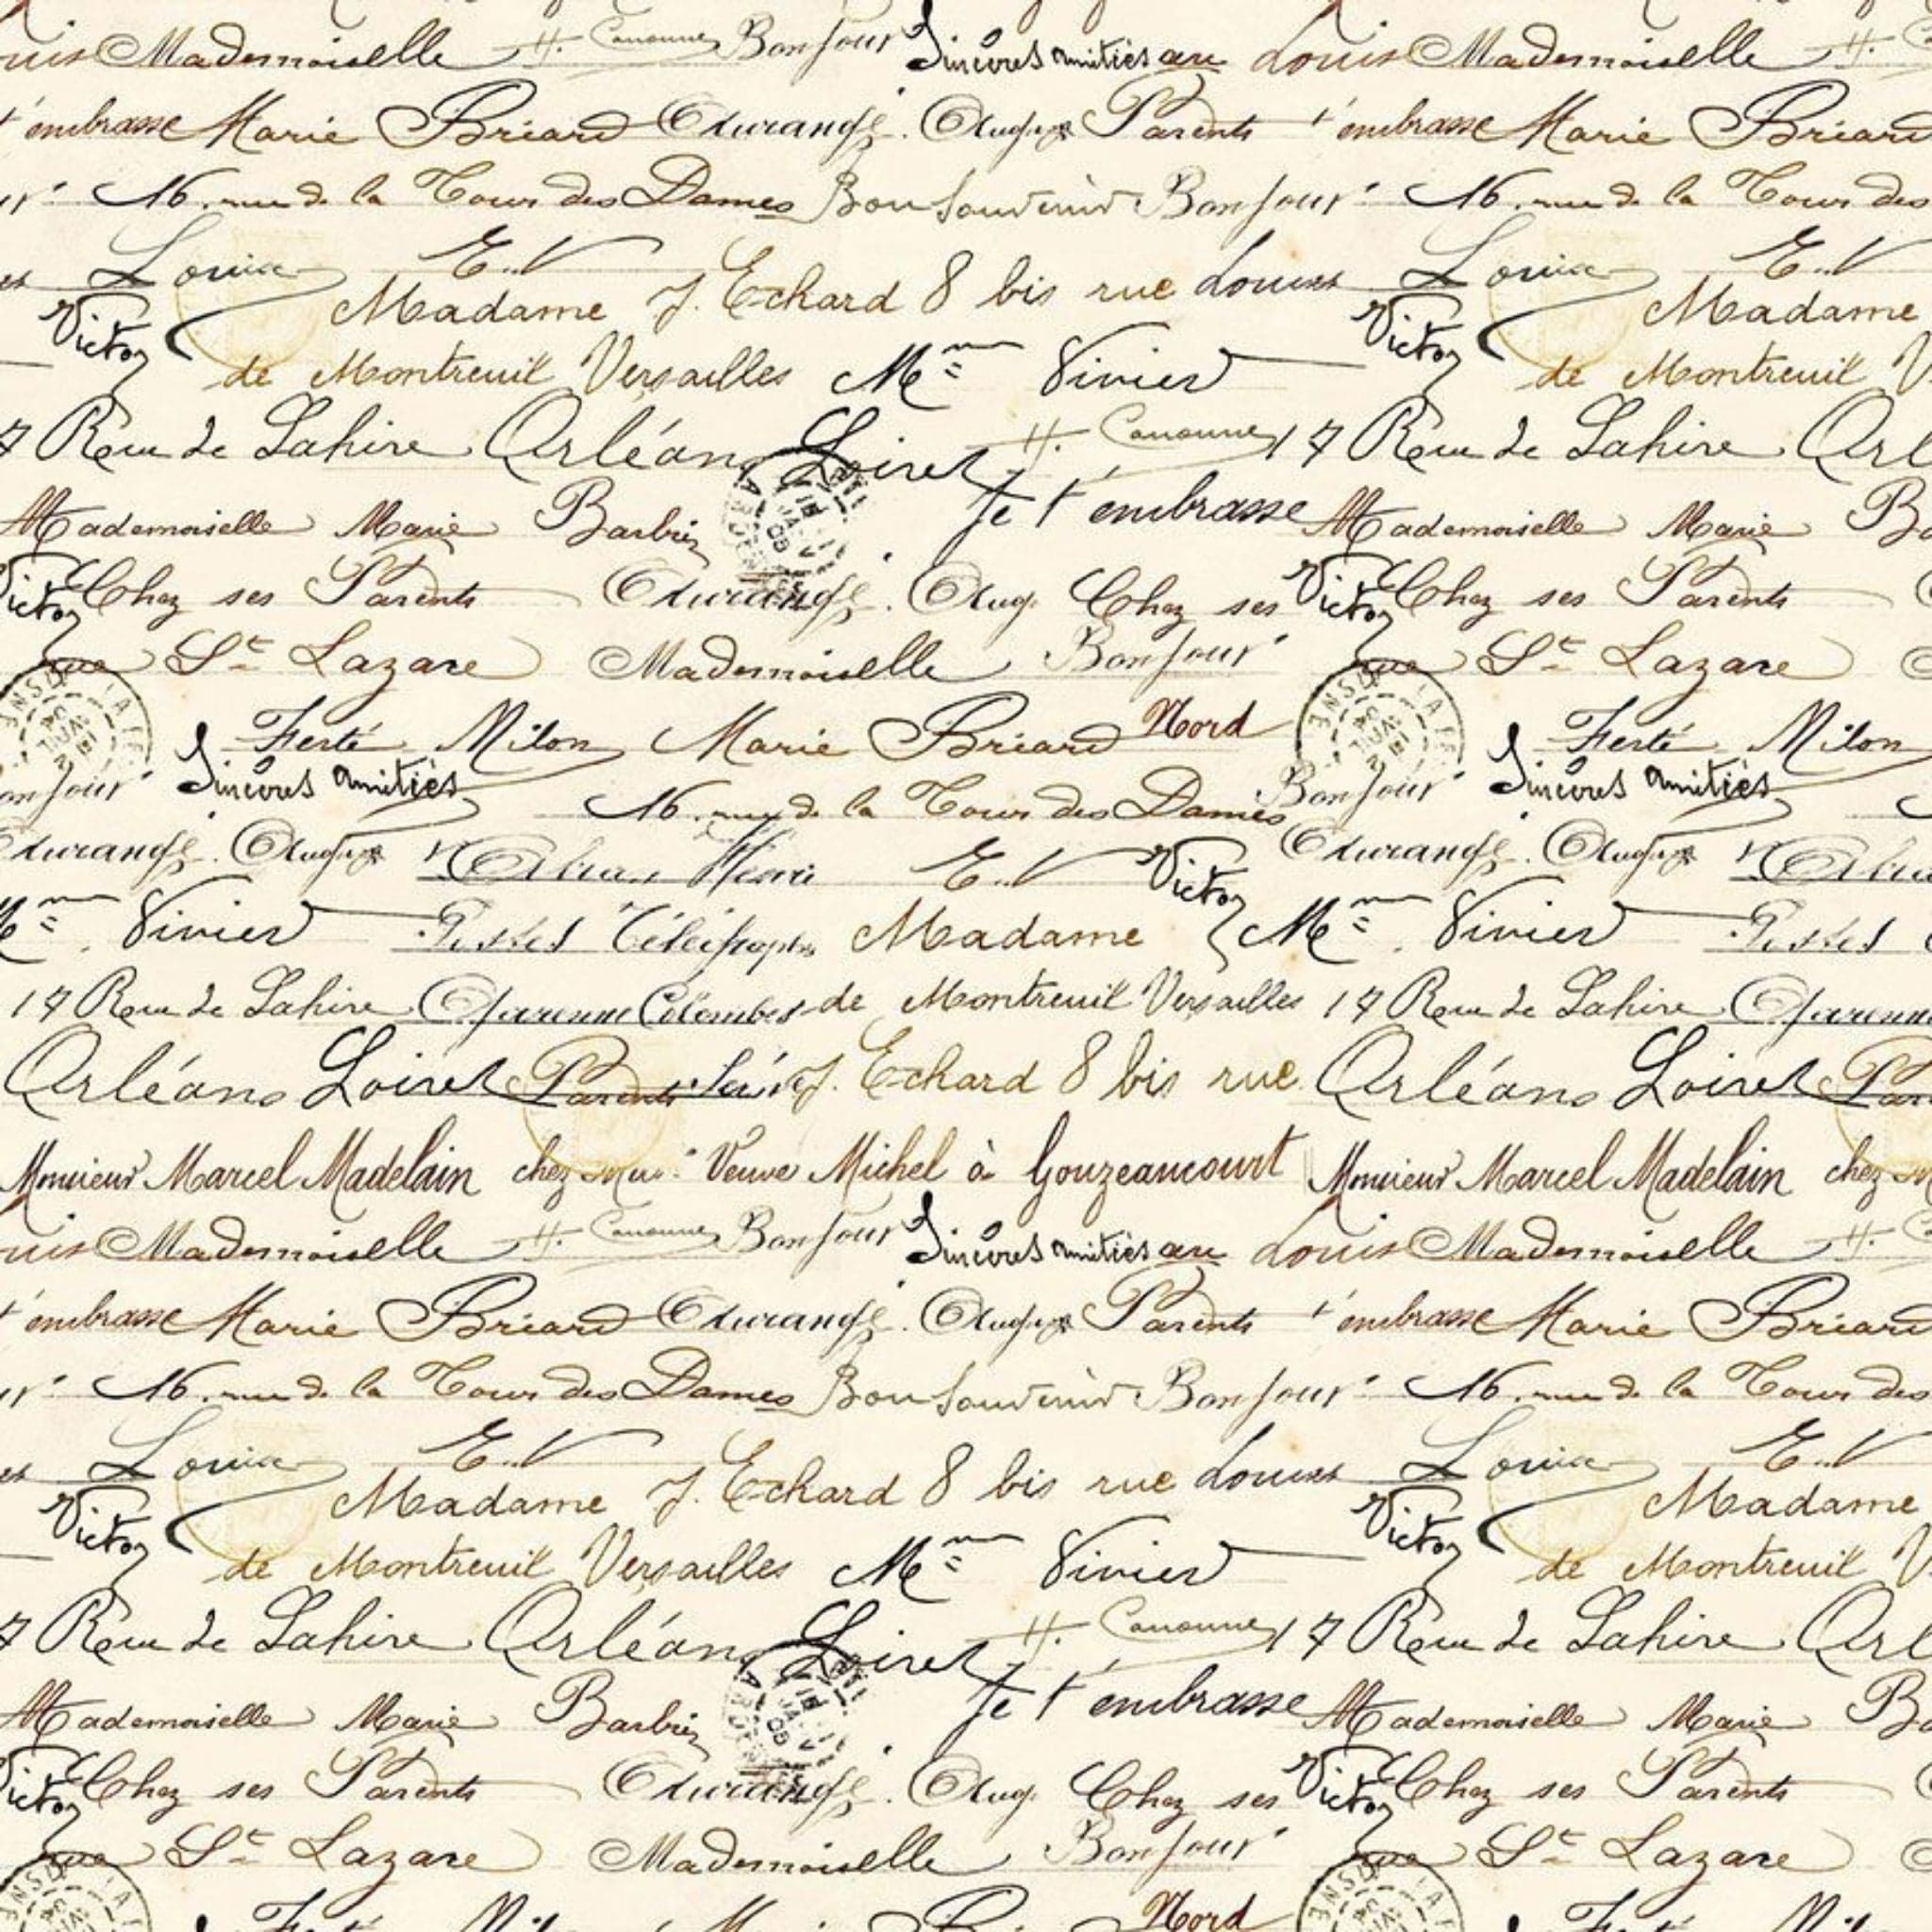 uis Mademoiselle H. Canonne Bonjour Sincères amitiés au Louis Mademoiselle H.
t'embrasse Marie Briard Aug Parents t'embrasse Marie Briard
16. rue de la Tour des Dames Bon Souvenir Bonjour 16. rue de la Tour des
Louise E.V J. Echard 8 bis rue Louise E.V
Victor Madame Victor Madame
de Montreuil Versailles Mme Vivier de Montreuil V
7 Rue de Lahire Orléans Loiret H. Canonne 17 Rue de Lahire Orl
Mademoiselle Marie Barbier Je t'embrasse Mademoiselle Marie Ba
Victor Chez ses Parents Aug. Chez ses Victor Chez ses Parents
rue St Lazare Mademoiselle Bonjour rue St Lazare
Ferté Milon Marie Briard Nord Ferté Milon
onjour Sincères amitiés 16. rue de la Tour des Dames Bonjour Sincères amitiés
Henri E.V Victor
Me Vivier Postes Télégraphes Madame Mme Vivier Postes
17 Rue de Lahire Garenne Colombes de Montreuil Versailles 17 Rue de Lahire Garenne
Orléans Loiret Parents J. Echard 8 bis rue Orléans Loiret Par
Monsieur Marcel Madelain chez Mme Veuve Michel à Gouzeaucourt Monsieur Marcel Madelain chez M
uis Mademoiselle H. Canonne Bonjour Sincères amitiés au Louis Mademoiselle H.
t'embrasse Marie Briard Aug Parents t'embrasse Marie Briard
16. rue de la Tour des Dames Bon Souvenir Bonjour 16. rue de la Tour des
Louise E.V J. Echard 8 bis rue Louise E.V
Victor Madame Victor Madame
de Montreuil Versailles Mme Vivier de Montreuil V
7 Rue de Lahire Orléans Loiret H. Canonne 17 Rue de Lahire Orl
Mademoiselle Marie Barbier Je t'embrasse Mademoiselle Marie Ba
Victor Chez ses Parents Aug. Chez ses Victor Chez ses Parents
rue St Lazare Mademoiselle Bonjour rue St Lazare
Nord